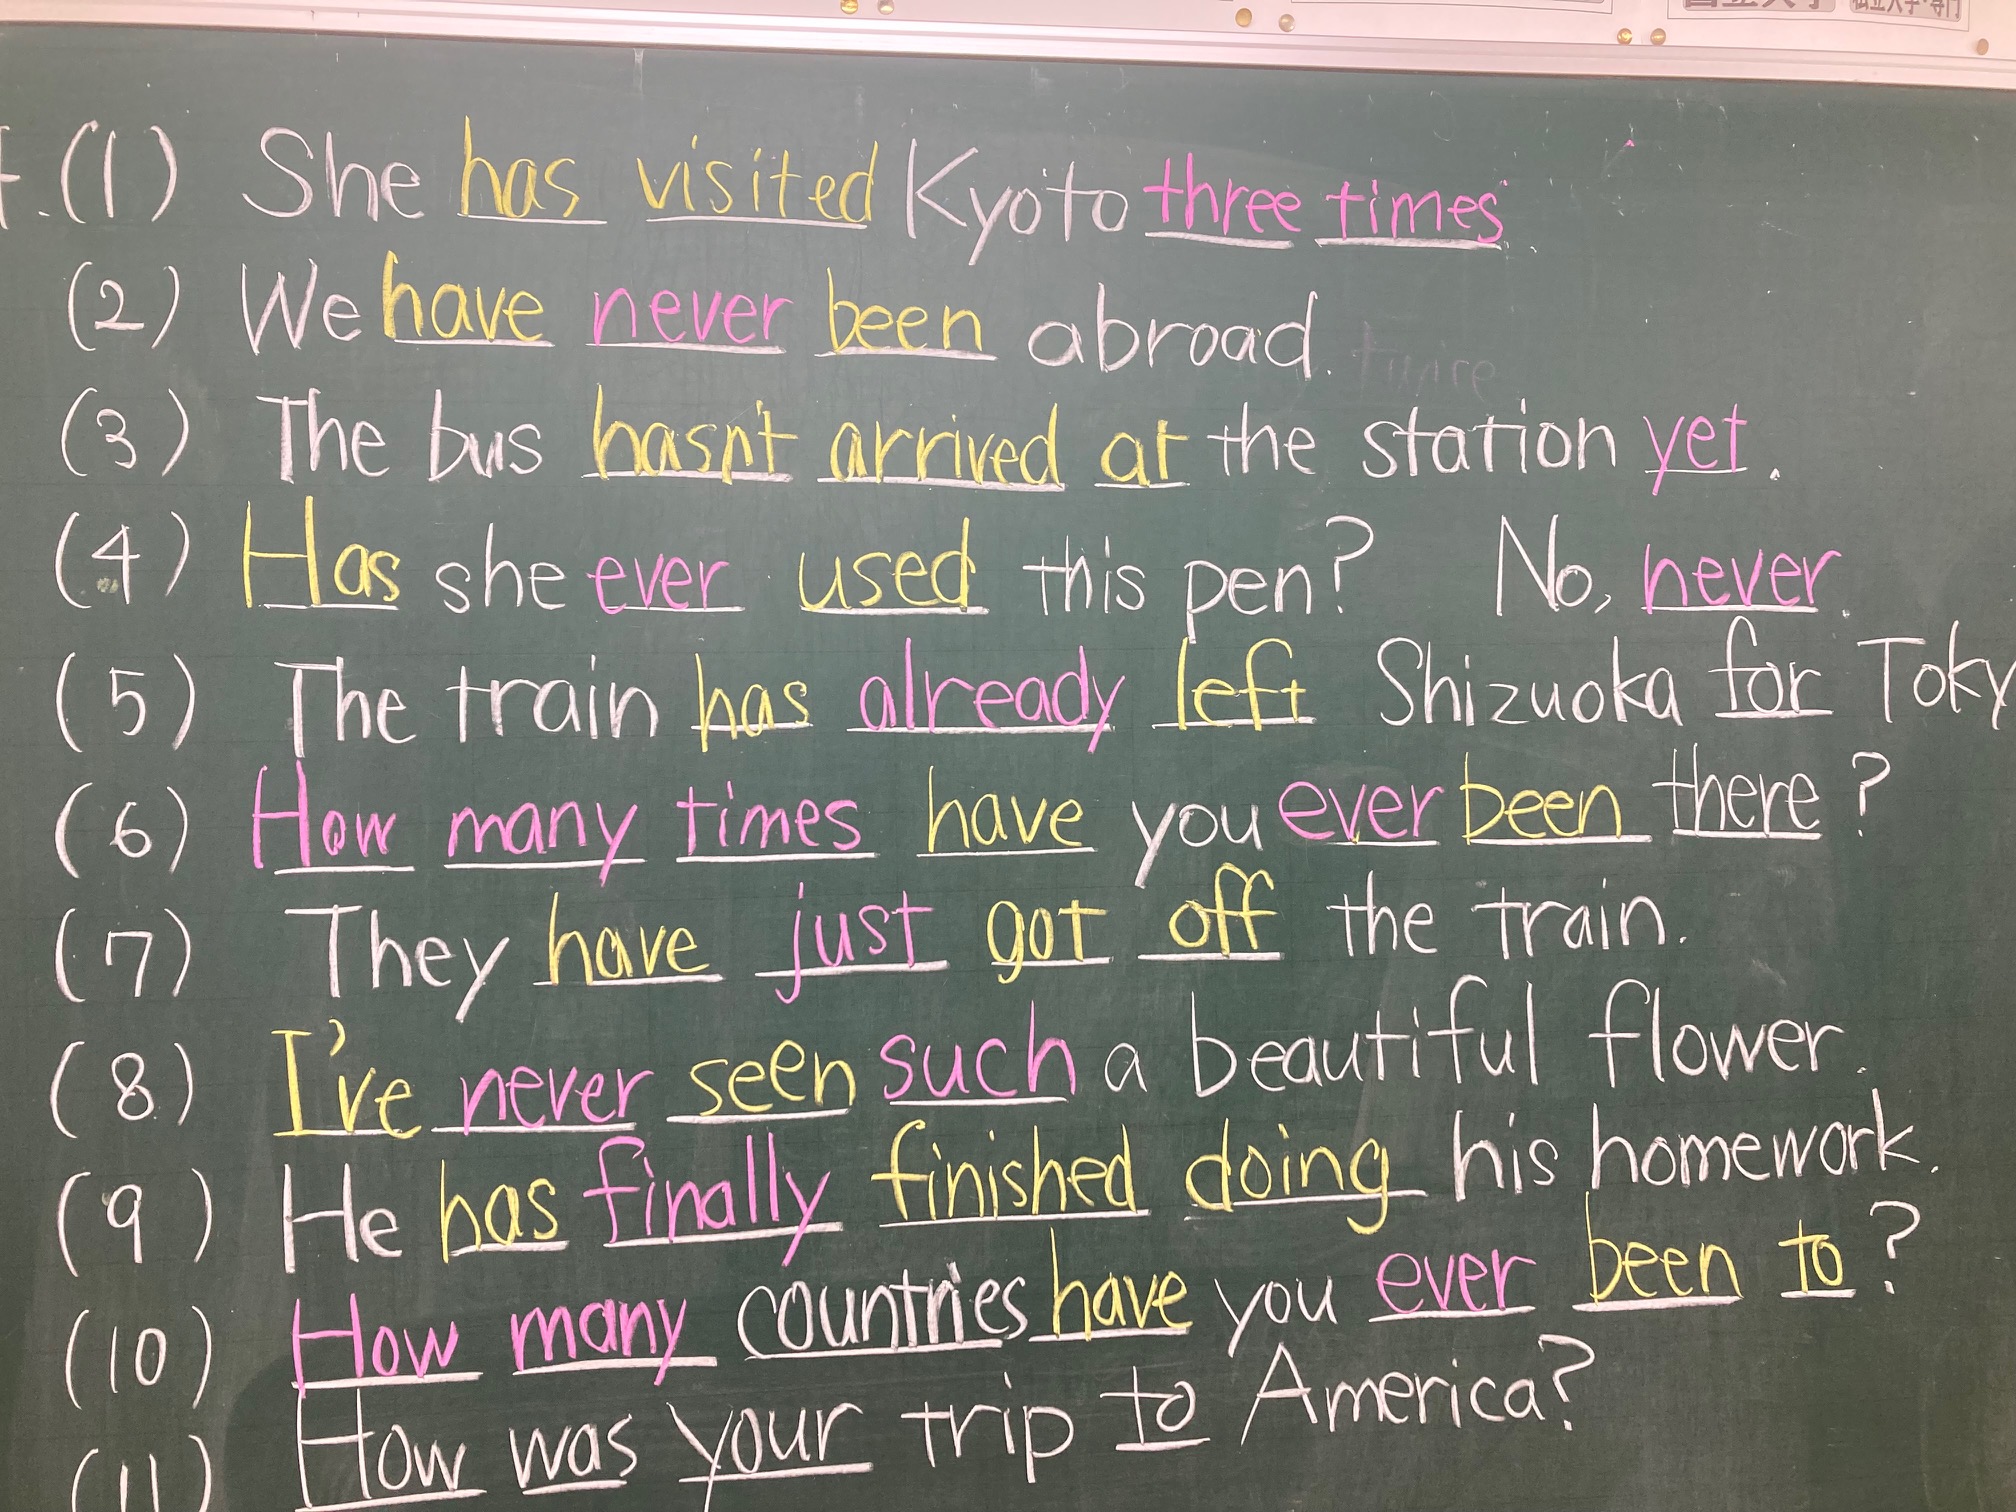 国立大学 私立大学・専門
(1) She has visited Kyoto three times.
(2) We have never been abroad. twice
(3) The bus hasn't arrived at the station yet.
(4) Has she ever used this pen? No, never.
(5) The train has already left Shizuoka for Toky
(6) How many times have you ever been there?
(7) They have just got off the train.
(8) I've never seen such a beautiful flower.
(9) He has finally finished doing his homework.
(10) How many countries have you ever been to?
(11) How was your trip to America?